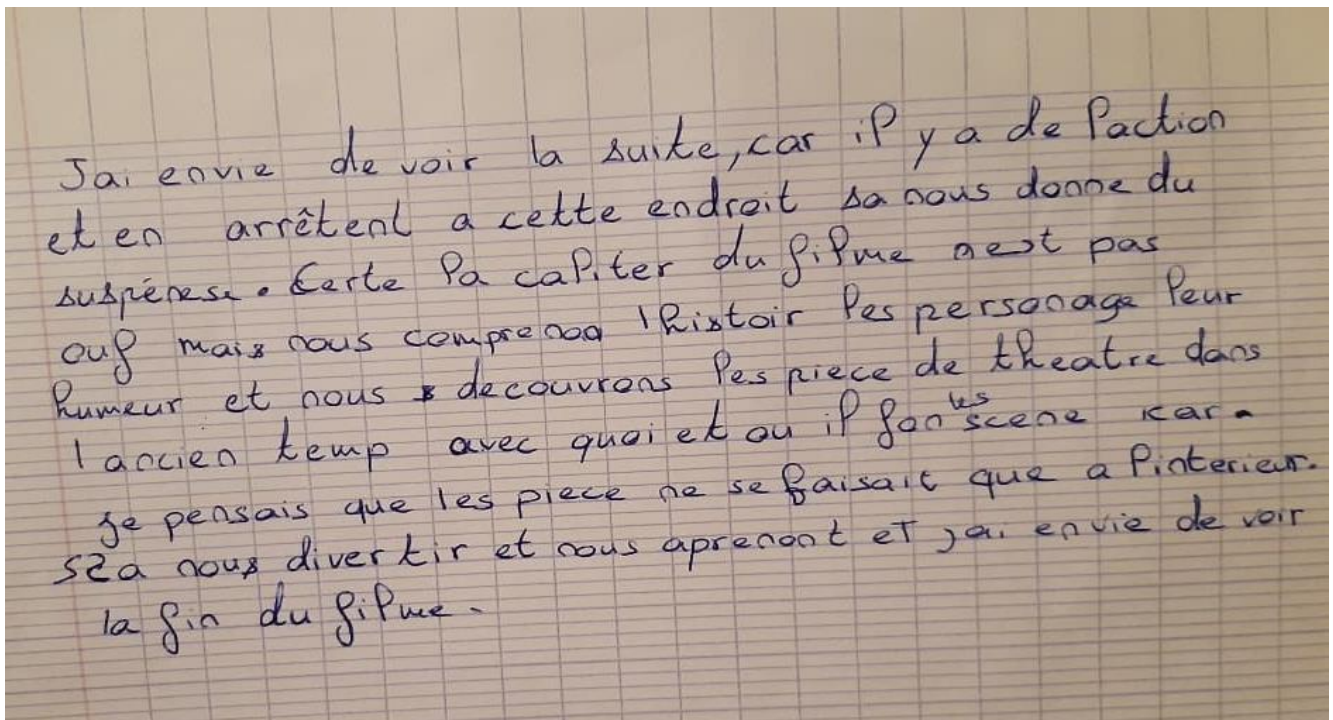 Jai envie de voir la suite, car il y a de laction
et en arrêtent a cette endroit sa nous donne du
suspénese. Certe la caliter du filme nest pas
ouf mais nous comprenon lhistoir les personage leur
humeur et nous decouvrons les piece de theatre dans
lancien temp avec quoi et ou il fon les scene car
je pensais que les piece ne se faisait que a linterieur.
sa nous divertir et nous aprenont et jai envie de voir
la fin du filme.